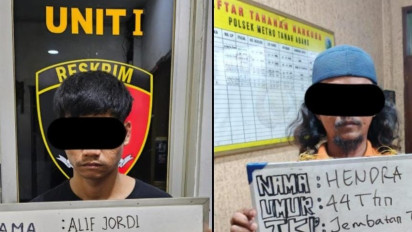 UNIT I
RESKRIM
NAMA : ALIF JORDI
DAFTAR TAHANAN NARKOBA
POLSEK METRO TANAH ABANG
NAMA : HENDRA
UMUR : 44 Thn
TKP : Jembatan T